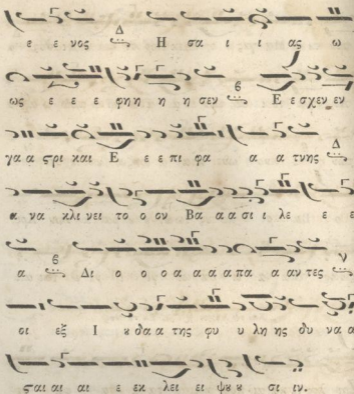 ε ε νος Δ Η σα ι ι ας ω
ως ε ε ε φη η η σεν ϐ Ε ε σχεν εν
γα α ϛρι και Ε ε ε πι φα α α τνης Δ
α να κλι νει το ο ον Βα α α σι ι λε ε ε
α ϐ Δι ο ο ο α α α α πα α αν τες ν
οι εξ Ι ȣ δα α της φυ υ λη ης δυ να α
ϛαι αι αι ε εκ λει ει ψȣ ȣ σι ιν.